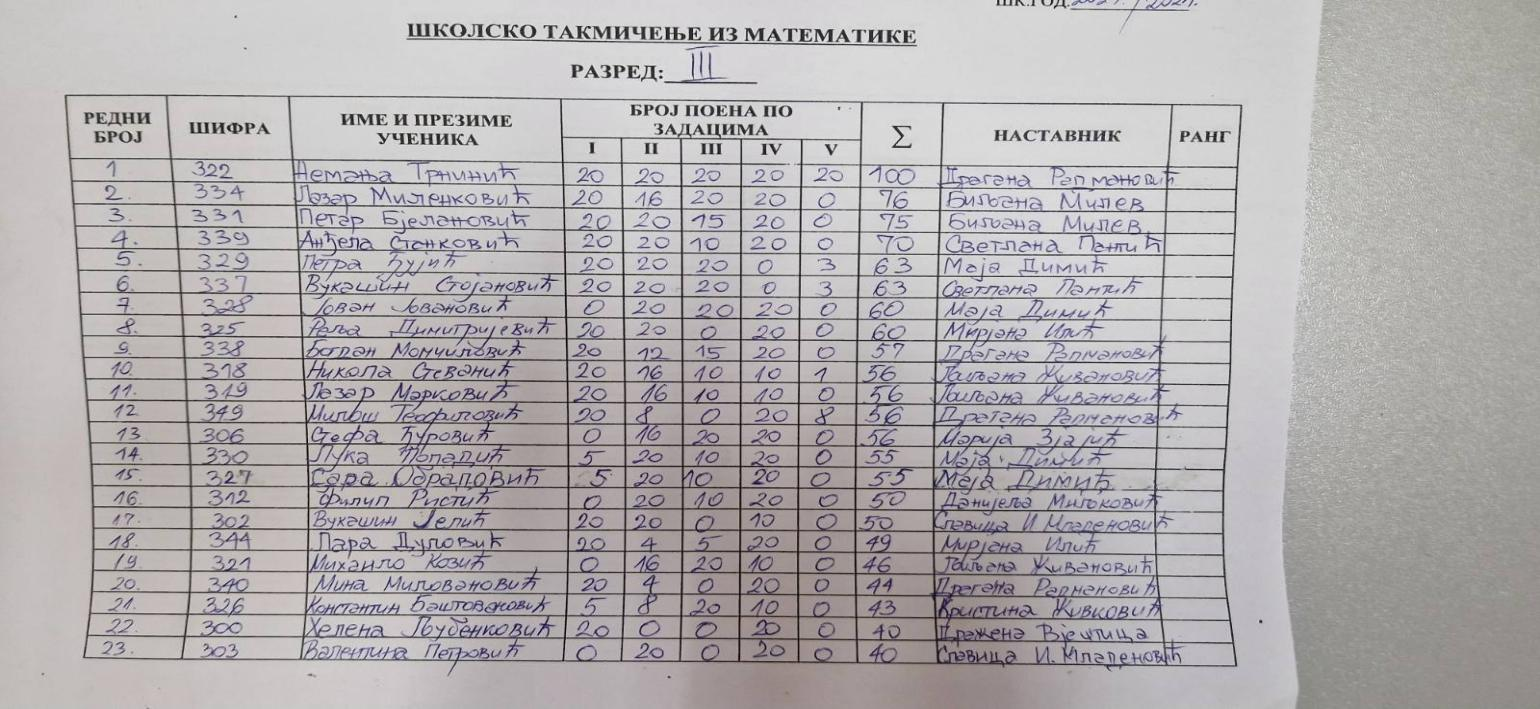 ШК.ГОД.
ШКОЛСКО ТАКМИЧЕЊЕ ИЗ МАТЕМАТИКЕ
РАЗРЕД: III
РЕДНИ БРОЈ ШИФРА ИМЕ И ПРЕЗИМЕ УЧЕНИКА БРОЈ ПОЕНА ПО ЗАДАЦИМА Σ НАСТАВНИК РАНГ
I II III IV V
1 322 Немања Трнинић 20 20 20 20 20 100 Драгана
2. 334 Лазар Миленковић 20 16 20 20 0 76 Биљана Милев
3. 331 Петар Бјелановић 20 20 15 20 0 75 Биљана Милев
4. 339 Анђела Станковић 20 20 10 20 0 70 Светлана Пантић
5. 329 Петра Ђујић 20 20 20 0 3 63 Маја Димић
6. 337 Вукашин Стојановић 20 20 20 0 3 63 Светлана Пантић
7. 328 Јован Јовановић 0 20 20 20 0 60 Маја Димић
8. 325 Раља Димитријевић 20 20 0 20 0 60 Мирјана Илић
9. 338 Богдан Момчиловић 20 12 15 20 0 57 Драгана
10. 318 Никола Стеванић 20 16 10 10 1 56 Љиљана Живановић
11. 319 Лазар Марковић 20 16 10 10 0 56 Љиљана Живановић
12 349 Милош Теофиловић 20 8 0 20 8 56 Драгана
13 306 Стефа Ђуровић 0 16 20 20 0 56 Марија Зјајић
14. 330 Лука Попадић 5 20 10 20 0 55 Маја Димић
15. 327 Сара Обрадовић 5 20 10 20 0 55 Маја Димић
16. 312 Филип Ристић 0 20 10 20 0 50 Данијела Миљковић
17. 302 Вукашин Јелић 20 20 0 10 0 50 Славица И Младеновић
18. 344 Лара Дуловић 20 4 5 20 0 49 Мирјана Илић
19. 321 Михаило Козић 0 16 20 10 0 46 Љиљана Живановић
20. 340 Мина Миловановић 20 4 0 20 0 44 Драгана
21. 326 Константин Баштовановић 5 8 20 10 0 43 Кристина Живковић
22. 300 Хелена Љубенковић 20 0 0 20 0 40 Дражена Вјештица
23. 303 Валентина Петровић 0 20 0 20 0 40 Славица И. Младеновић